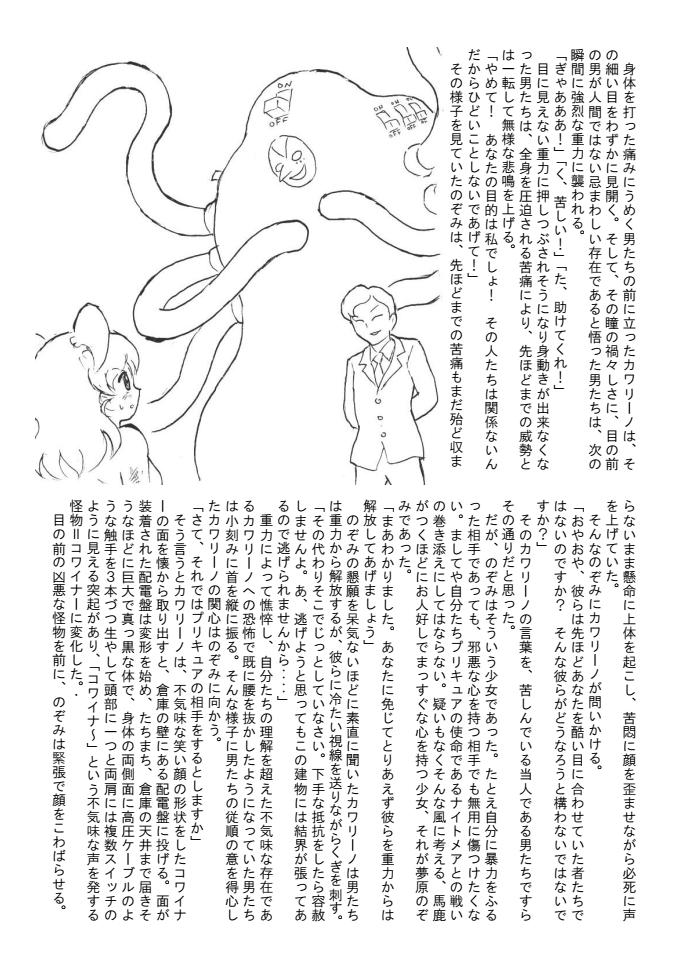 身体を打った痛みにうめく男たちの前に立ったカワリーノは、そ
の細い目をわずかに見開く。そして、その瞳の禍々しさに、目の前
の男が人間ではない忌まわしい存在であると悟った男たちは、次の
瞬間に強烈な重力に襲われる。
「ぎゃあああ！」「く、苦しい！」「た、助けてくれ！」
目に見えない重力に押しつぶされそうになり身動きが出来なくな
った男たちは、全身を圧迫される苦痛により、先ほどまでの威勢と
は一転して無様な悲鳴を上げる。
「やめて！　あなたの目的は私でしょ！　その人たちは関係ないん
だからひどいことしないであげて！」
その様子を見ていたのぞみは、先ほどまでの苦痛もまだ殆ど収ま
ON
OFF
ON
OFF
らないまま懸命に上体を起こし、苦悶に顔を歪ませながら必死に声
を上げていた。
そんなのぞみにカワリーノが問いかける。
「おやおや、彼らは先ほどあなたを酷い目に合わせていた者たちで
はないのですか？　そんな彼らがどうなろうと構わないではないで
すか？」
そのカワリーノの言葉を、苦しんでいる当人である男たちですら
その通りだと思った。
だが、のぞみはそういう少女であった。たとえ自分に暴力をふる
った相手であっても、邪悪な心を持つ相手でも無用に傷つけたくな
い。ましてや自分たちプリキュアの使命であるナイトメアとの戦い
の巻き添えにしてはならない。疑いもなくそんな風に考える、馬鹿
がつくほどにお人好しでまっすぐな心を持つ少女、それが夢原のぞ
みであった。
「まあわかりました。あなたに免じてとりあえず彼らを重力からは
解放してあげましょう」
のぞみの懇願を呆気ないほどに素直に聞いたカワリーノは男たち
は重力から解放するが、彼らに冷たい視線を送りながらくぎを刺す。
「その代わりそこでじっとしていなさい。下手な抵抗をしたら容赦
しませんよ。あ、逃げようと思ってもこの建物には結界が張ってあ
るので逃げられませんから・・・」
重力によって憔悴し、自分たちの理解を超えた不気味な存在であ
るカワリーノへの恐怖で既に腰を抜かしたようになっていた男たち
は小刻みに首を縦に振る。そんな様子に男たちの従順の意を得心し
たカワリーノの関心はのぞみに向かう。
「さて、それではプリキュアの相手をするとしますか」
そう言うとカワリーノは、不気味な笑い顔の形状をしたコワイナ
ーの面を懐から取り出すと、倉庫の壁にある配電盤に投げる。面が
装着された配電盤は変形を始め、たちまち、倉庫の天井まで届きそ
うなほどに巨大で真っ黒な体で、身体の両側面に高圧ケーブルのよ
うな触手を３本づつ生やして頭部に一つと両肩には複数スイッチの
ように見える突起があり、「コワイナ～」という不気味な声を発する
怪物＝コワイナーに変化した。.
目の前の凶悪な怪物を前に、のぞみは緊張で顔をこわばらせる。